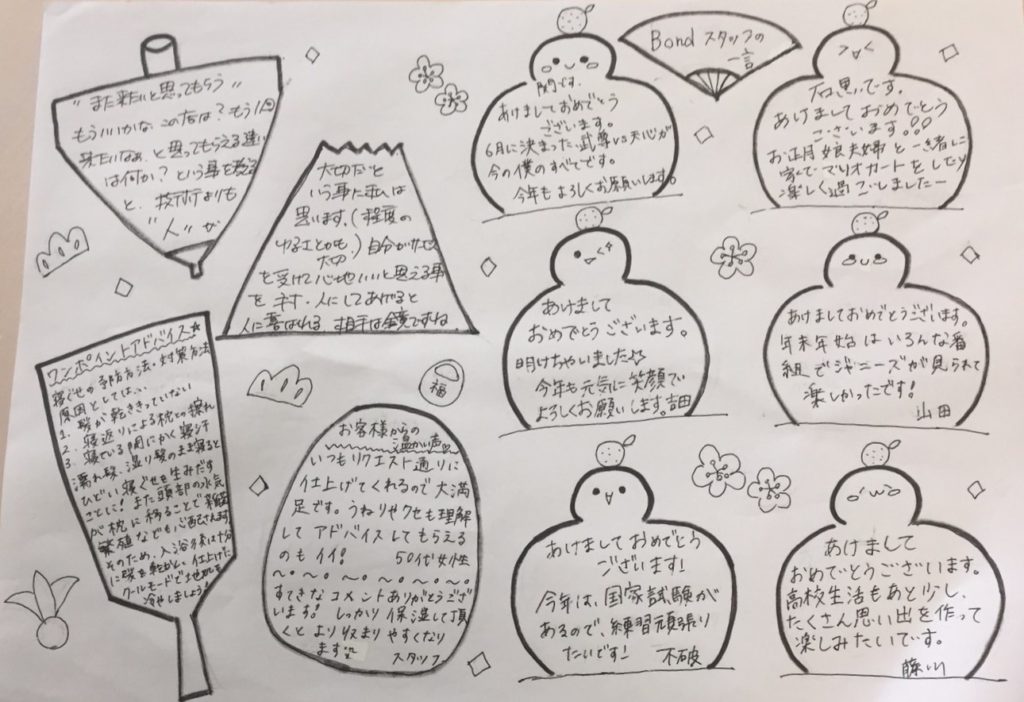 "また来たいと思ってもらう"
もういいかな この店は?もう1回
来たいなぁ、と思ってもらえる違い
は何か?という事を考える
と、技術よりも
"人"が
大切だと
いう事に私は
思います。(程度の
ゆるさとかも
大切。)自分がサービス
を受けて心地いいと思える事
を
人にしてあげると
人に喜ばれる 相手は鏡ですね
Bond スタッフの
一言
門です。
あけましておめでとう
ございます。
6月に決まった、武尊vs天心が
今の僕のすべてです。
今年もよろしくお願いします。
石黒です。
あけましておめでとう
ございます!!!
お正月娘夫婦と一緒に
家でマリオカートをしたり
楽しく過ごしましたー
あけまして
おめでとうございます。
明けちゃいました♪♪
今年も元気に笑顔で
よろしくお願いします。吉田
あけましておめでとうございます。
年末年始はいろんな番
組でジャニーズが見られて
楽しかったです!
山田
あけましておめでとう
ございます!
今年は、国家試験が
あるので、練習頑張り
たいです! 不破
あけまして
おめでとうございます。
高校生活もあと少し、
たくさん思い出を作って
楽しみたいです。
藤川
ワンポイントアドバイス☆
寝ぐせの予防方法・対策方法
原因としては、、、
1. 髪が乾ききっていない
2. 寝返りによる枕との擦れ
3. 寝ている間にかく寝汗
濡れ髪、湿り髪のまま寝ると
ひどい寝ぐせを生みだす
ことに!また頭部の水気
が枕に移ることで雑菌
繁殖なども心配されます
そのため、入浴後は十分
に髪を乾かし、仕上げに
クールモードで地肌を
冷やしましょう
福
お客様からの
温かい声
いつもリクエスト通りに
仕上げてくれるので大満
足です。うねりやクセも理解
してアドバイスしてもらえる
のもイイ! 50代女性
すてきなコメントありがとうござ
います! しっかり保湿して頂
くとよりおさまりやすくなり
ます
スタッフ